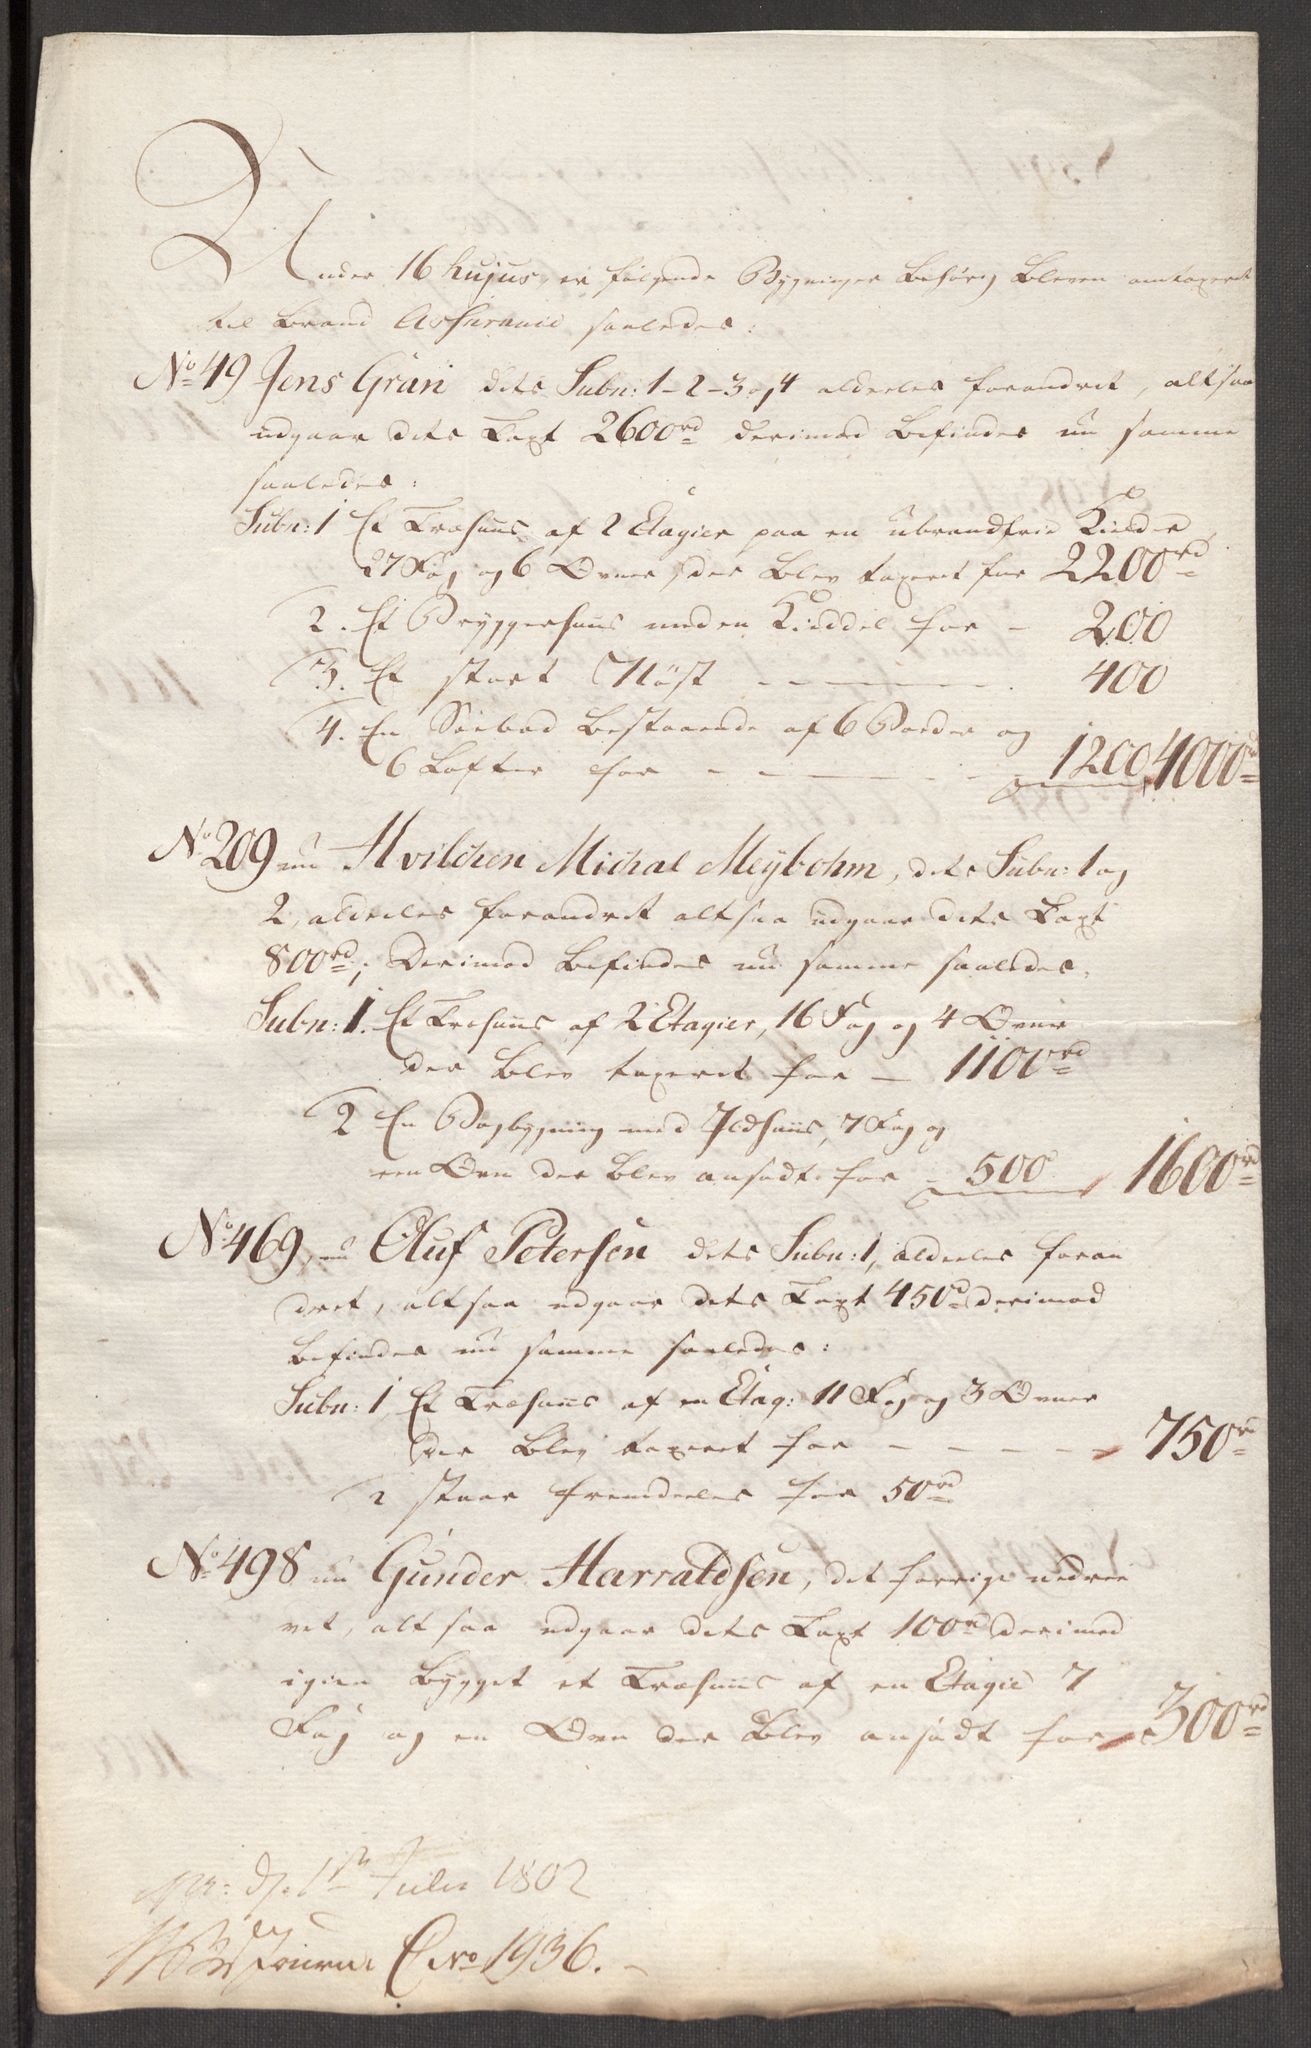 Under 16 hujus, er følgende Bygninger behørig bleven omtaxeret
til Brand Assurance saaledes:
No 49 Jens Gran dets Subn: 1-2-3 og 4 aldeeles forandret, altsaa
udgaar dets Taxt 2600rd derimod befindes nu samme
saaledes:
Subn: 1 Et Træhuus af 2 Etagier paa en ubrandfrie Kielder
27 Fag og 6 Ovner, der blev taxeret for 2200rd
2. Et Bryggerhuus med en Kieddel for - 200
3. Et stort Nøst - - - - 400
4. En Søebod bestaaende af 6 Boeder og
6 Lofter for - - - - 1200 4000rd
No 209 nu Hvilchen Michal Meybohm, dets Subn: 1 og
2, aldeeles forandret altsaa udgaar dets Taxt
800rd; Derimod befindes nu samme saaledes,
Subn: 1. Et Træhuus af 2 Etagier, 16 Fag og 4 Ovner
der blev taxeret for - 1100rd
2 En Bagbygning med Ildhuus, 7 Fag og
een Ovn der blev ansadt for - 500 1600rd
No 469, nu Oluf Petersen dets Subn: 1, aldeeles foran
dret, altsaa udgaar dets Taxt 450rd derimod
befindes nu samme saaledes:
Subn: 1, Et Træhuus af en Etag: 11 Fag og 3 Ovner
der blev taxeret for - - - - 750rd
2 staar fremdeeles for 50rd
No 498 nu Gunder Harraldsen, det forrige nedree
vet, altsaa udgaar dets Taxt 100rd derimod
igien bygget et Træhuus af en Etagie 7
Fag og en Ovn der blev ansadt for 300rd
d: 1ste Julii 1802
Journ: C No 1936.